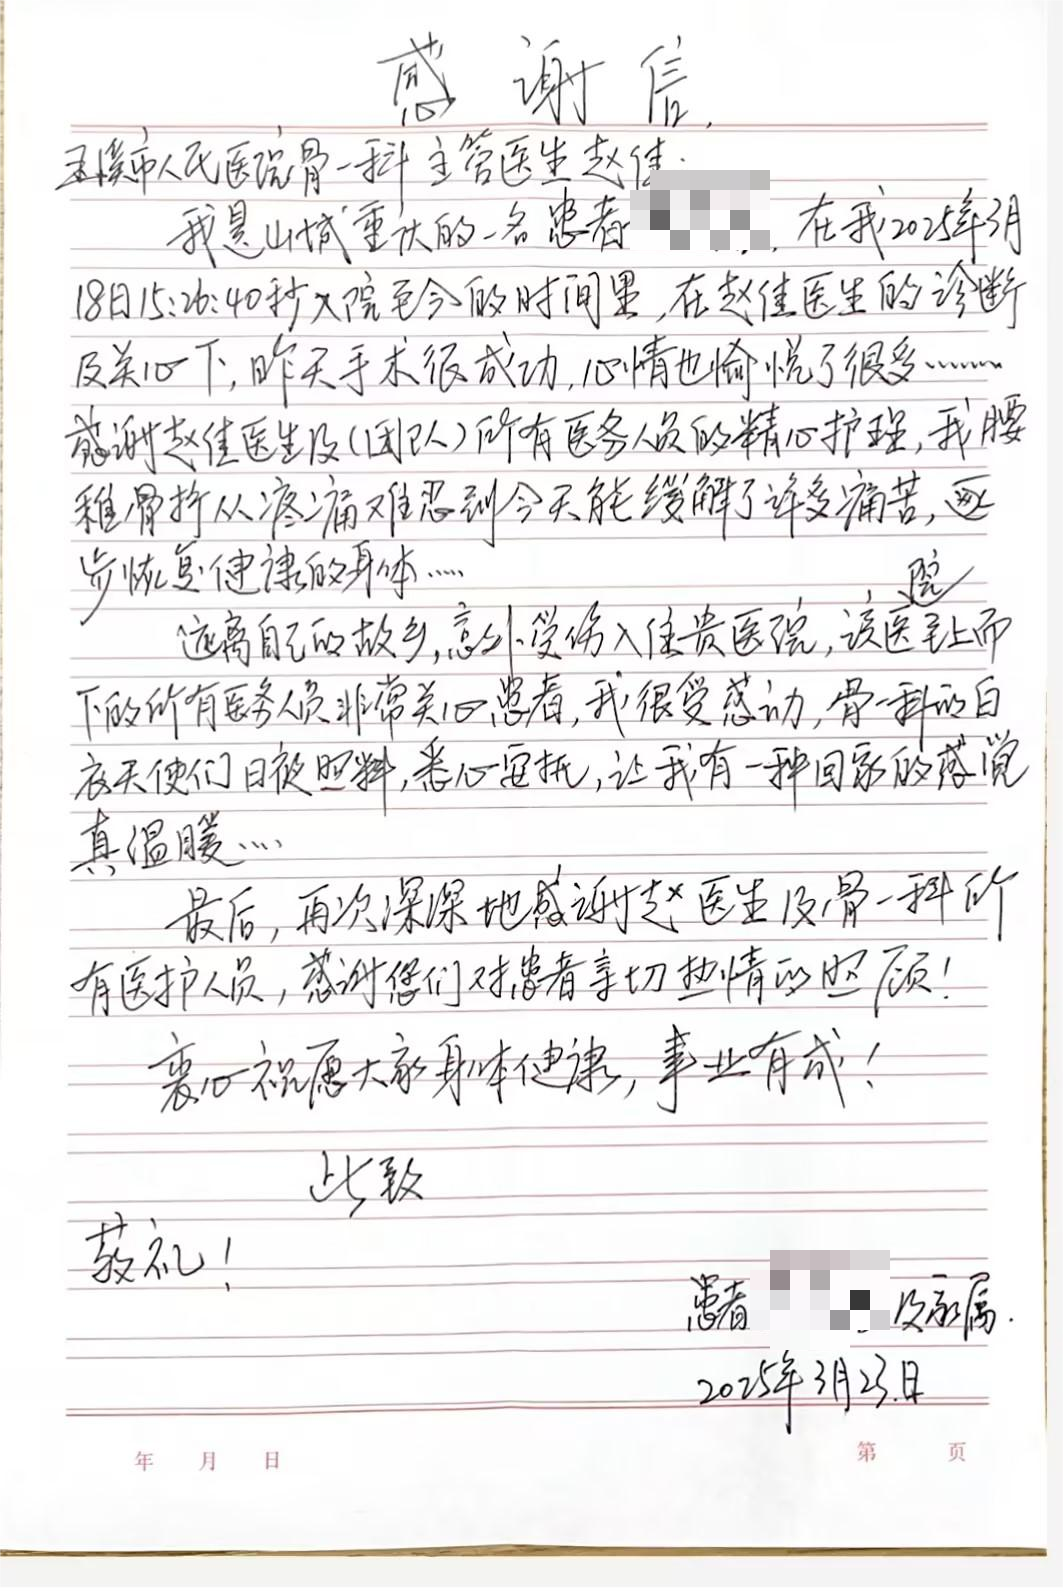 感谢信.
玉溪市人民医院骨一科主管医生赵佳.
我是山城重庆的一名患者 , 在我2025年3月
18日15:26:40秒入院至今的时间里,在赵佳医生的诊断
及关心下,昨天手术很成功,心情也愉悦了很多………
感谢赵佳医生及(团队)所有医务人员的精心护理,我腰
椎骨折从疼痛难忍到今天能缓解了许多痛苦,逐
步恢复健康的身体……
远离自己的故乡,意外受伤入住贵医院,该医院至上而
下的所有医务人员非常关心患者,我很受感动,骨一科的白
衣天使们日夜照料,悉心再抚,让我有一种回家的感觉
真温暖….
最后,再次深深地感谢赵医生及骨一科所
有医护人员,感谢您们对患者亲切热情的照顾!
衷心祝愿大家身体健康,事业有成!
此致
敬礼!
患者 及家属.
2025年3月23日
年 月 日 第 页